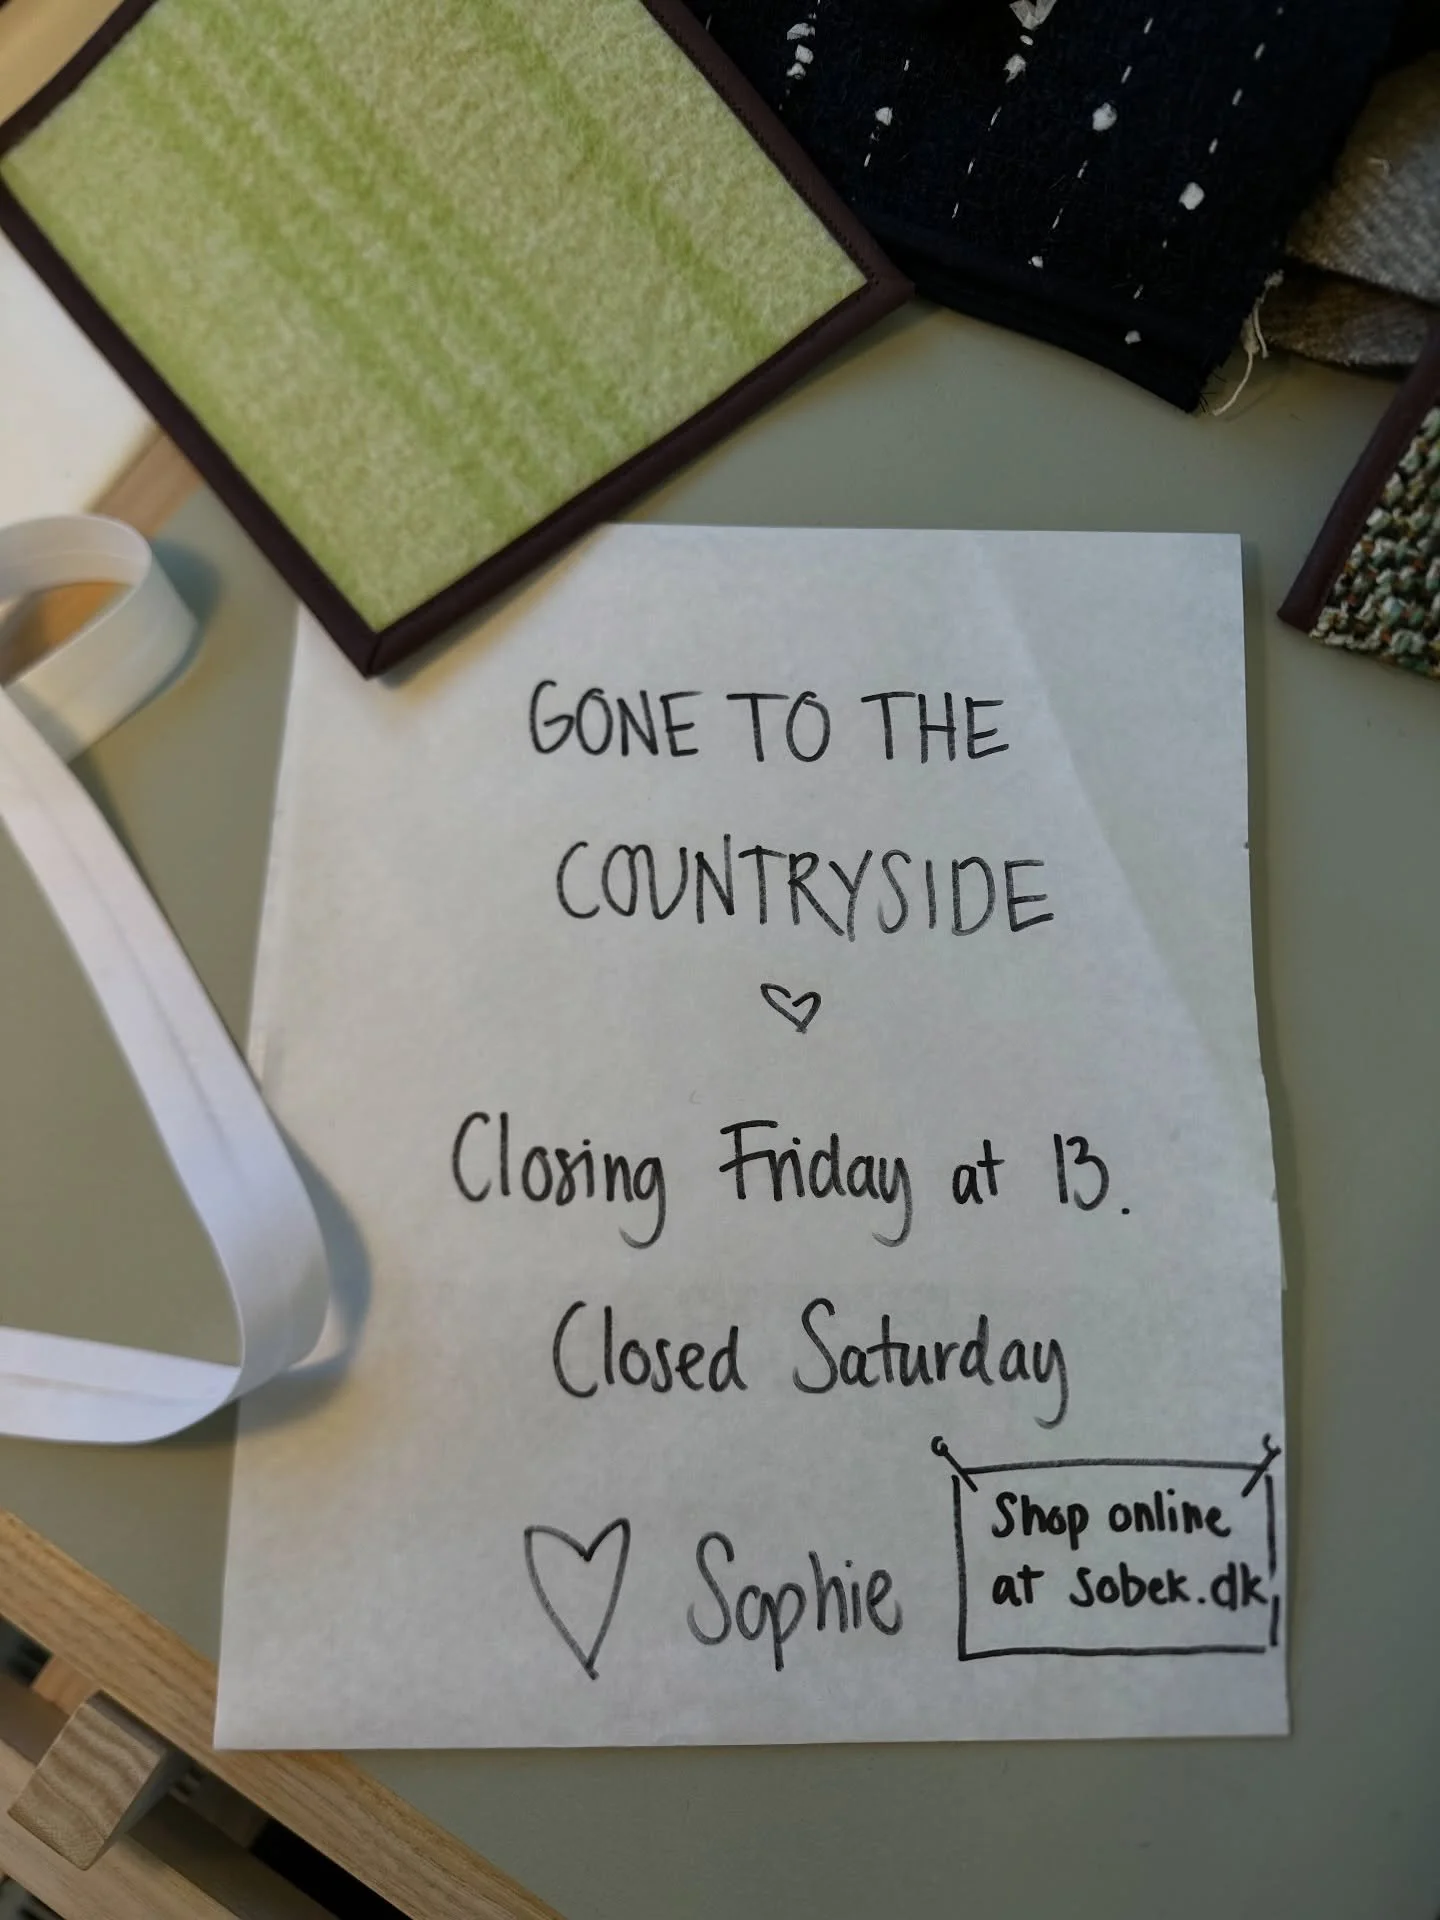 GONE TO THE
COUNTRYSIDE
♡
Closing Friday at 13.
Closed Saturday
♡ Sophie
Shop online
at Sobek.dk